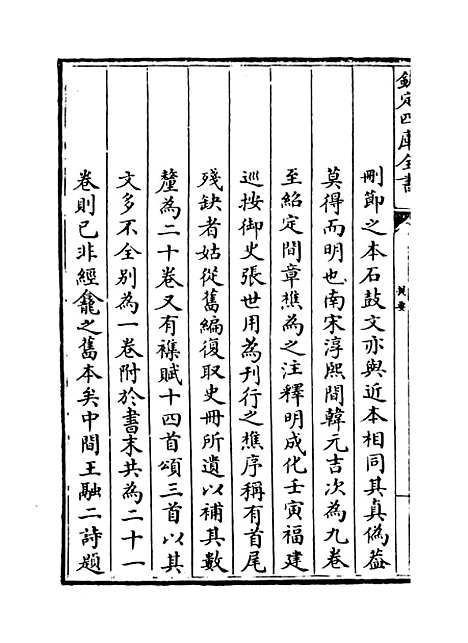 欽定四庫全書
提要
刪節之本石鼓文亦與近本相同其真偽葢
莫得而明也南宋淳熙間韓元吉次為九卷
至紹定間章樵為之注釋明成化壬寅福建
巡按御史張世用為刊行之樵序稱有首尾
殘缺者姑從舊編復取史冊所遺以補其數
釐為二十卷又有襍賦十四首頌三首以其
文多不全別為一卷附於書末共為二十一
卷則已非經龕之舊本矣中間王融二詩題